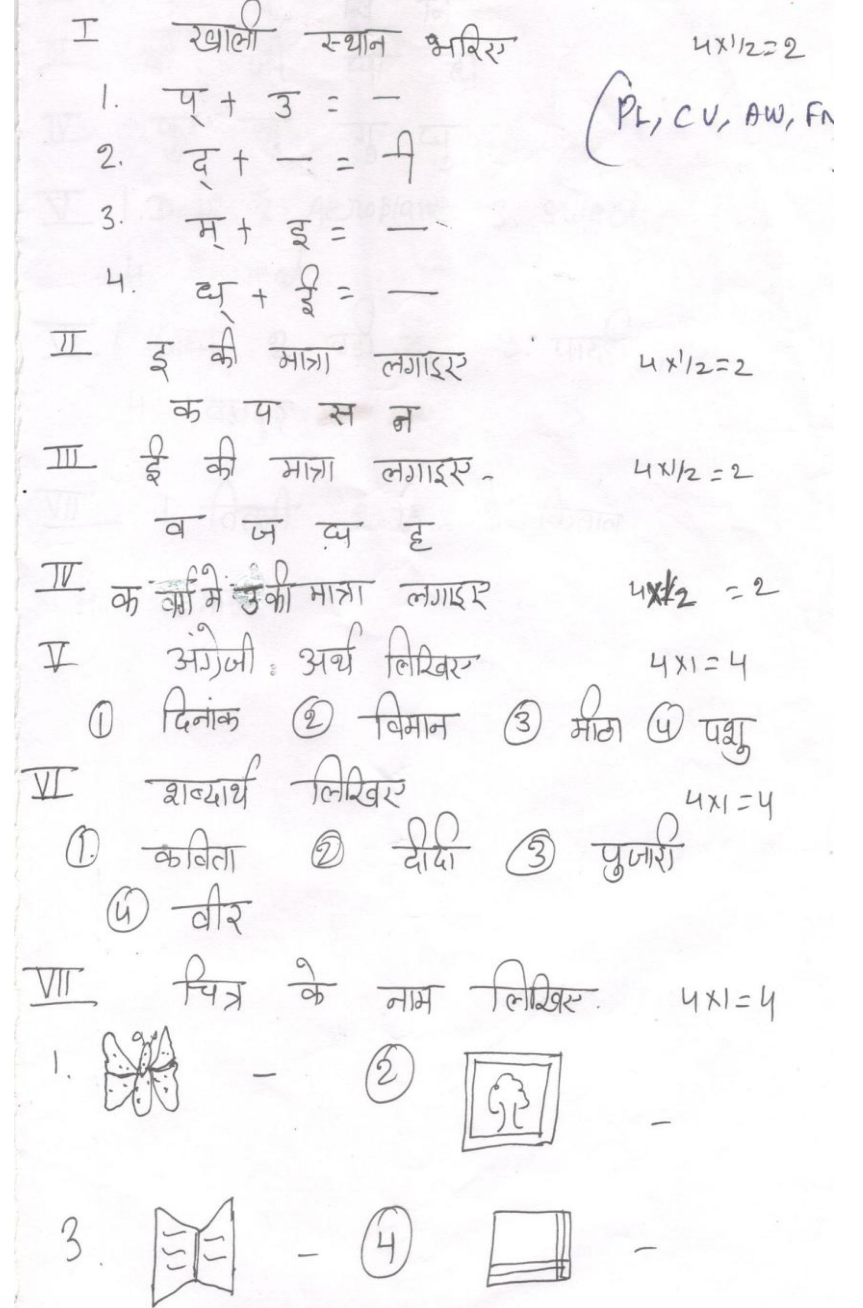 I खाली स्थान भरिए 4x1/2=2
(PL, CV, AW, FN
1. प् + उ = —
2. द् + — = दी
3. म् + इ = —
4. ध् + ई = —
II इ की मात्रा लगाइए 4x1/2=2
क प स न
III ई की मात्रा लगाइए - 4x1/2=2
व ज द्य ह
IV क वर्ग मे उ की मात्रा लगाइए 4x1/2 = 2
V अंग्रेजी अर्थ लिखिए 4x1=4
① दिनांक ② विमान ③ मीठा ④ पशु
VI शब्दार्थ लिखिए 4x1=4
① कविता ② दीदी ③ पुजारी
④ वीर
VII चित्र के नाम लिखिए. 4x1=4
1. — ② —
3. — ④ —